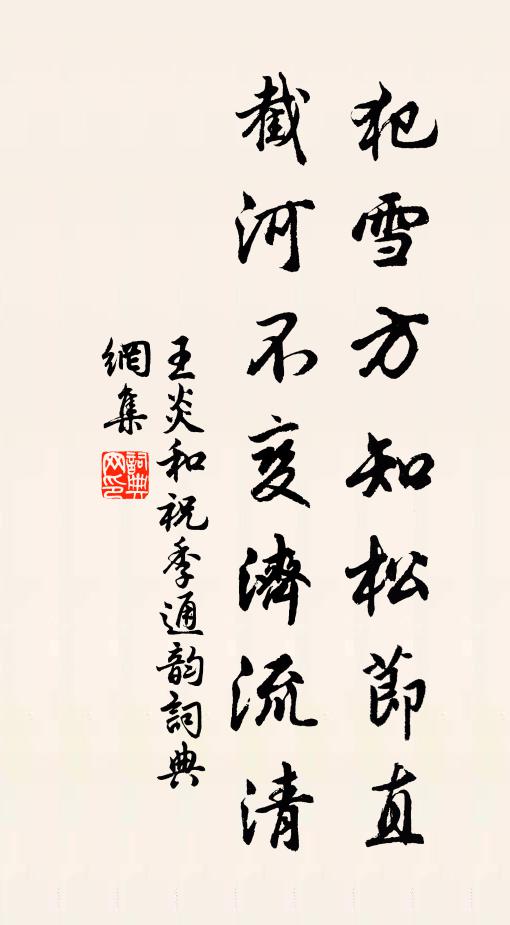 犯雪方知松節直
截河不变濟流清
王炎和祝季通韵詞典
網集
詞典網印